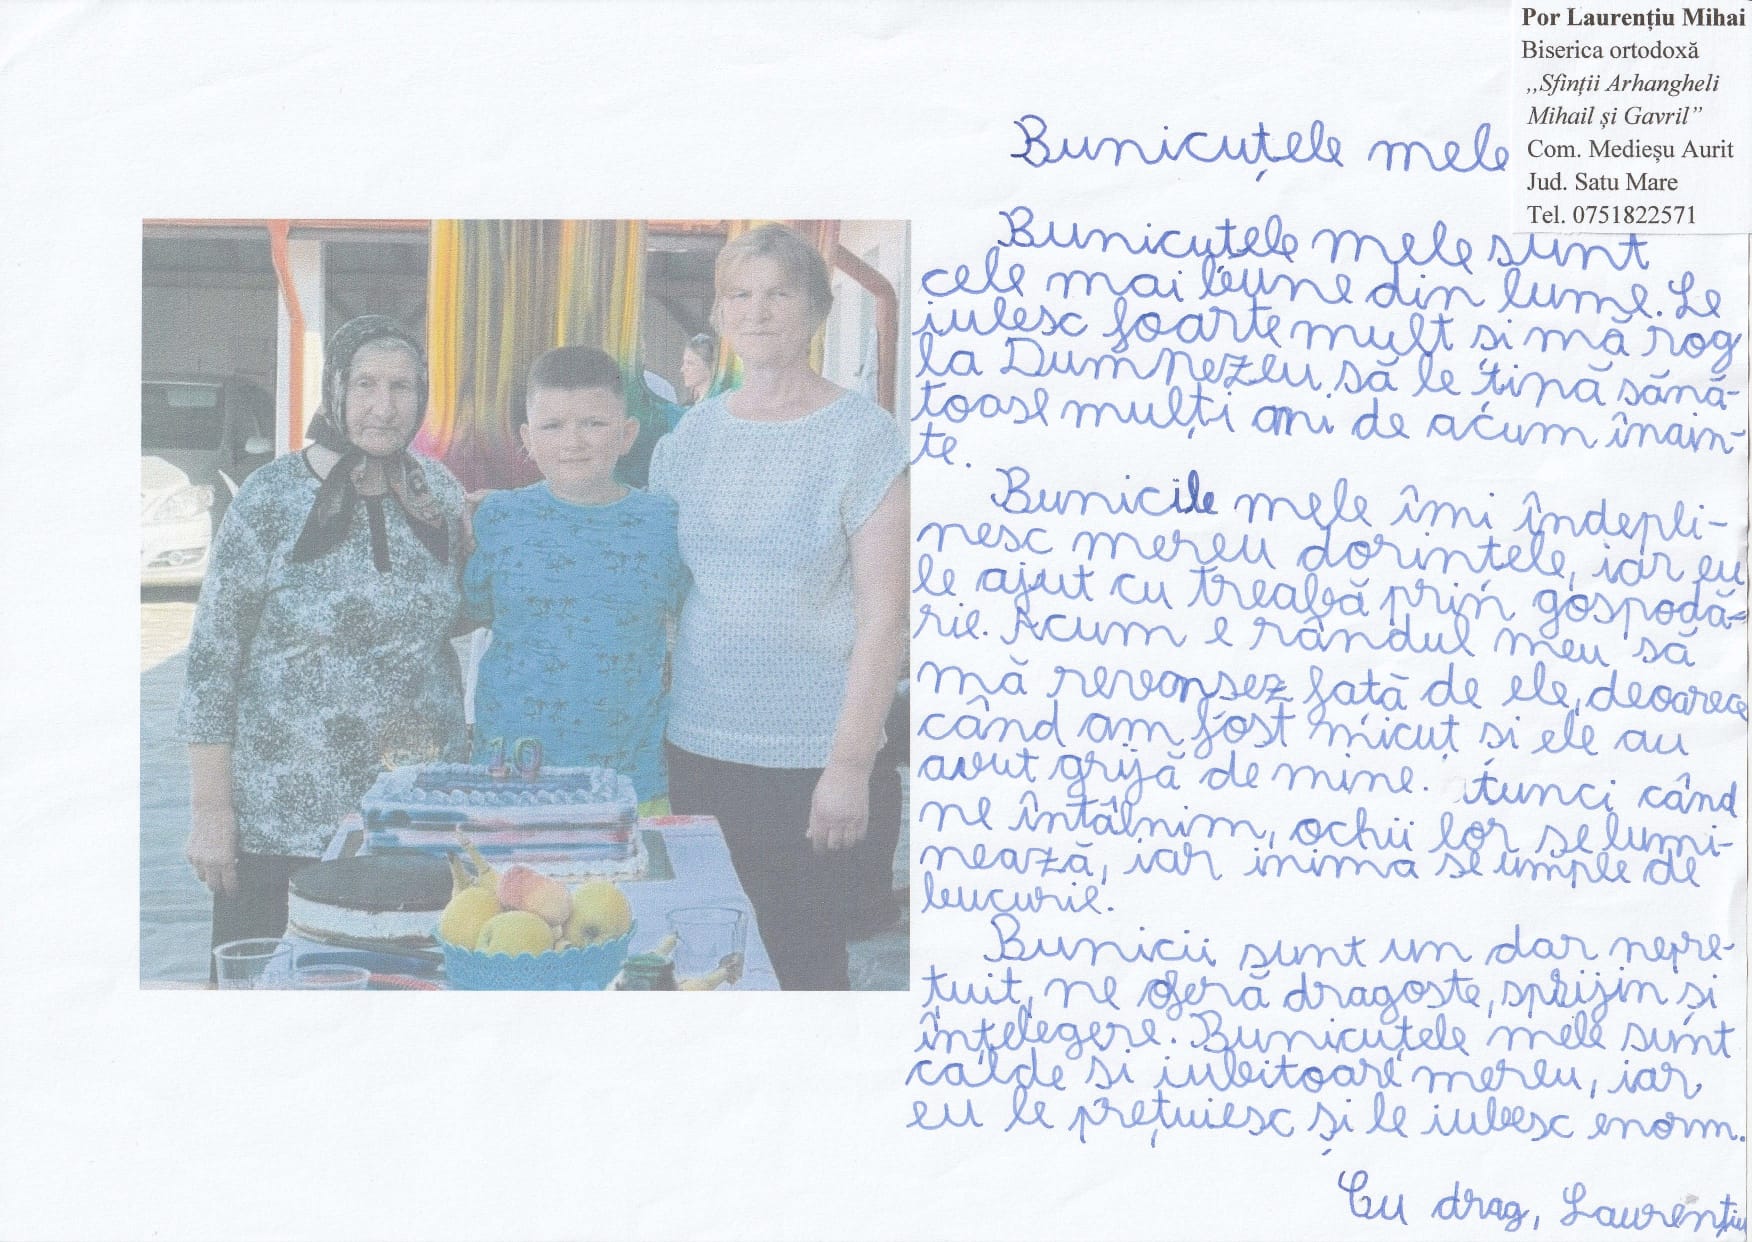 Por Laurențiu Mihai
Biserica ortodoxă
,,Sfinții Arhangheli
Mihail și Gavril”
Com. Medieșu Aurit
Jud. Satu Mare
Tel. 0751822571
Bunicuțele mele
Bunicuțele mele sunt
cele mai bune din lume. Le
iubesc foarte mult și mă rog
la Dumnezeu să le țină sănă-
toase mulți ani de acum înain-
te.
Bunicile mele îmi îndepli-
nesc mereu dorințele, iar eu
le ajut cu treabă prin gospodă-
rie. Acum e rândul meu să
mă revonsez față de ele, deoarece
când am fost micuț și ele au
avut grijă de mine. tunci când
ne întâlnim, ochii lor se lumi-
nează, iar inima se umple de
bucurie.
Bunicii sunt un dar nepre-
țuit, ne oferă dragoste, sprijin și
înțelegere. Bunicuțele mele sunt
calde si iubitoare mereu, iar
eu le prețuiesc și le iubesc enorm.
Cu drag, Laurențiu
10